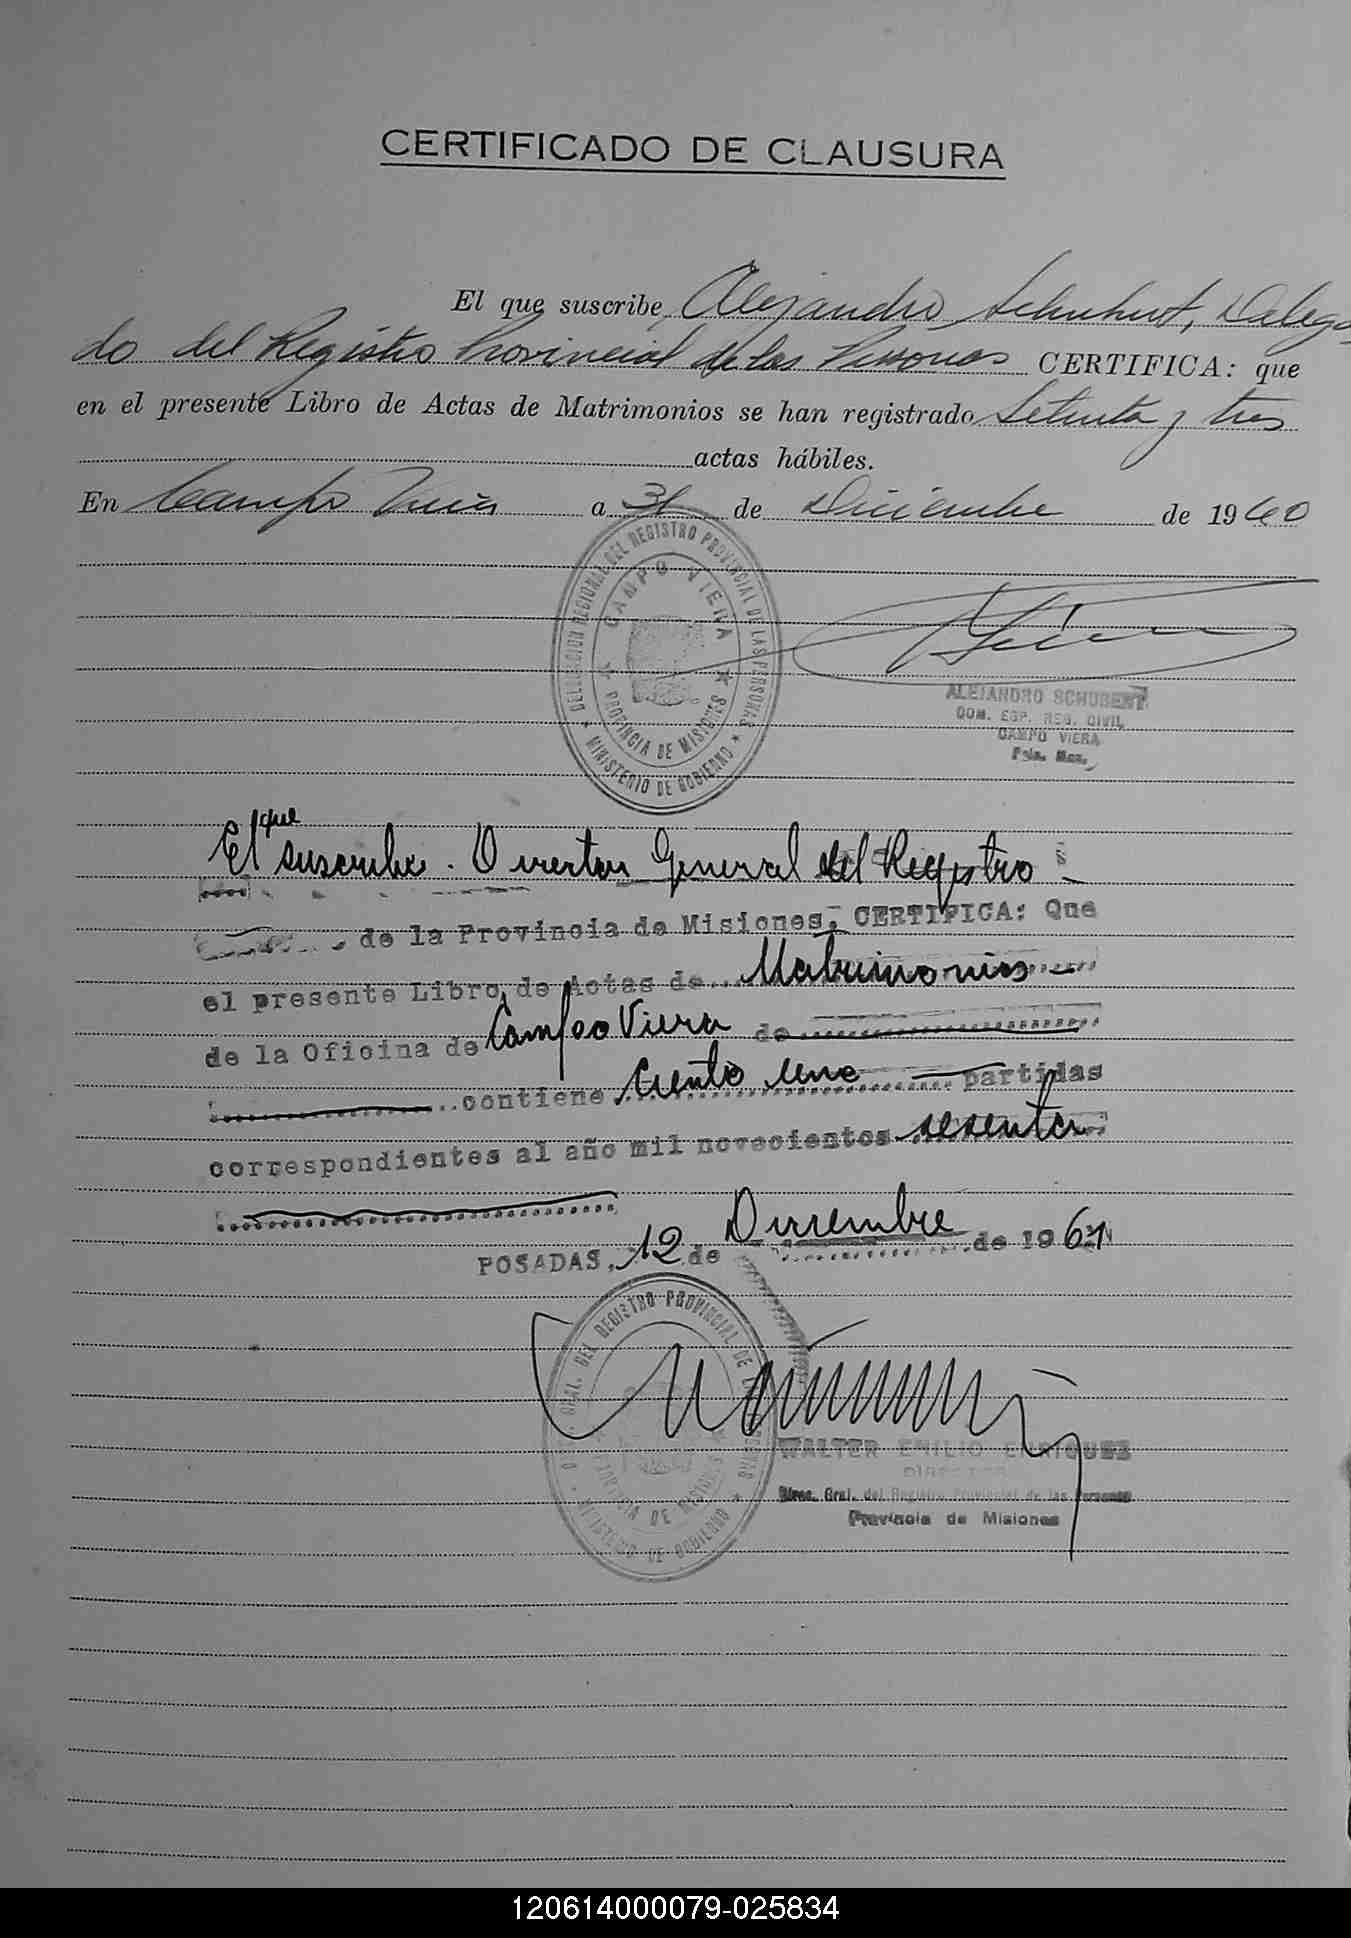 CERTIFICADO DE CLAUSURA
El que suscribe, Alejandro Schubert, Delega
do del Registro Provincial de las Personas CERTIFICA: que
en el presente Libro de Actas de Matrimonios se han registrado Setenta y tres
actas hábiles.
En Campo Viera a 31 de Diciembre de 1960
DELEGACION REGIONAL DEL REGISTRO PROVINCIAL DE LAS PERSONAS
CAMPO VIERA
PROVINCIA DE MISIONES
MINISTERIO DE GOBIERNO
ALEJANDRO SCHUBERT
COM. ESP. REG. CIVIL
CAMPO VIERA
Pcia. Mnes.
El que suscribe. Director General del Registro
de la Provincia de Misiones, CERTIFICA: Que
el presente Libro de Actas de Matrimonios
de la Oficina de Campo Viera de
contiene Ciento uno partidas
correspondientes al año mil novecientos sesenta
POSADAS, 12 de Diciembre de 1961
GRAL. DEL REGISTRO PROVINCIAL DE LAS PERSONAS
PROVINCIA DE MISIONES
MINISTERIO DE GOBIERNO
WALTER EMILIO ENRIQUEZ
DIRECTOR
Direc. Gral. del Registro Provincial de las Personas
Provincia de Misiones
120614000079-025834